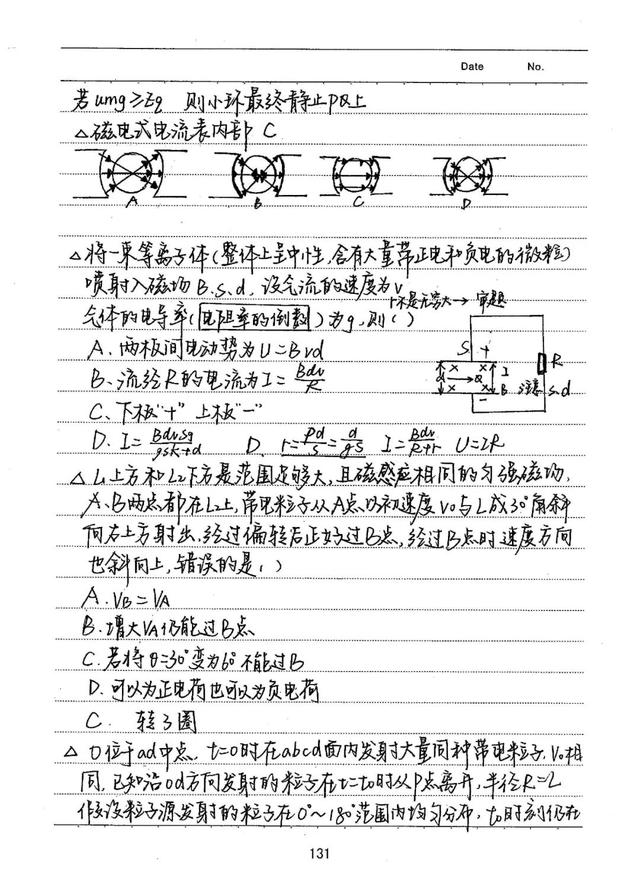 Date No.
若umg≥Eq 则小环最终静止PQ上
△磁电式电流表内部 C
A B C D
△将一束等离子体(整体上呈中性,含有大量带正电和负电的微粒)
喷射入磁场B.S.d,设气流的速度为v
r不是无穷大→审题
气体的电导率(电阻率的倒数)为g,则( )
A、两板间电动势为U=Bvd
B、流经R的电流为I=Bdv/R
C、下板"+" 上板"-"
S + R
d × × I
× × B 注意 S.d
-
D. I=BdvSg/gSR+d D. r=ρd/S=d/gS I=Bdv/R+r U=IR
△L1上方和L2下方是范围足够大,且磁感应相同的匀强磁场,
A、B两点都在L2上,带电粒子从A点以初速度v0与L成30°角斜
向右上方射出,经过偏转后正好过B点,经过B点时速度方向
也斜向上,错误的是( )
A.VB=VA
B.增大VA仍能过B点
C.若将θ=30°变为60°不能过B
D.可以为正电荷也可以为负电荷
C. 转3圈
△ O位于ad中点,t=0时在abcd面内发射大量同种带电粒子,V0相
同,已知沿od方向发射的粒子在t=t0时从P点离开,半径R=L
粒子源发射的粒子在0°~180°范围内均匀分布,t0时刻仍在
131